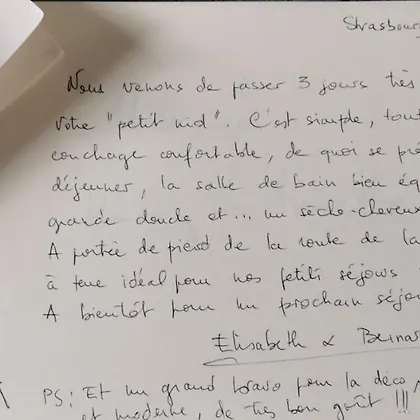 Strasbourg
Nous venons de passer 3 jours très
votre "petit nid". C'est simple, tout
couchage confortable, de quoi se pré
déjeuner, la salle de bain bien éq
grande douche et... un sèche-cheveux
A portée de pied de la route de la
à tene idéal pour nos petits séjours
A bientôt pour un prochain séjou
Elisabeth & Bernar
PS: Et un grand bravo pour la déco,
et moderne, de très bon goût !!!